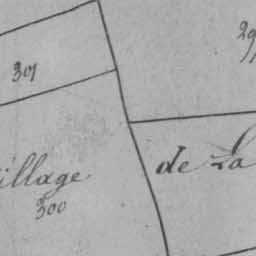 301
illage
300
de La